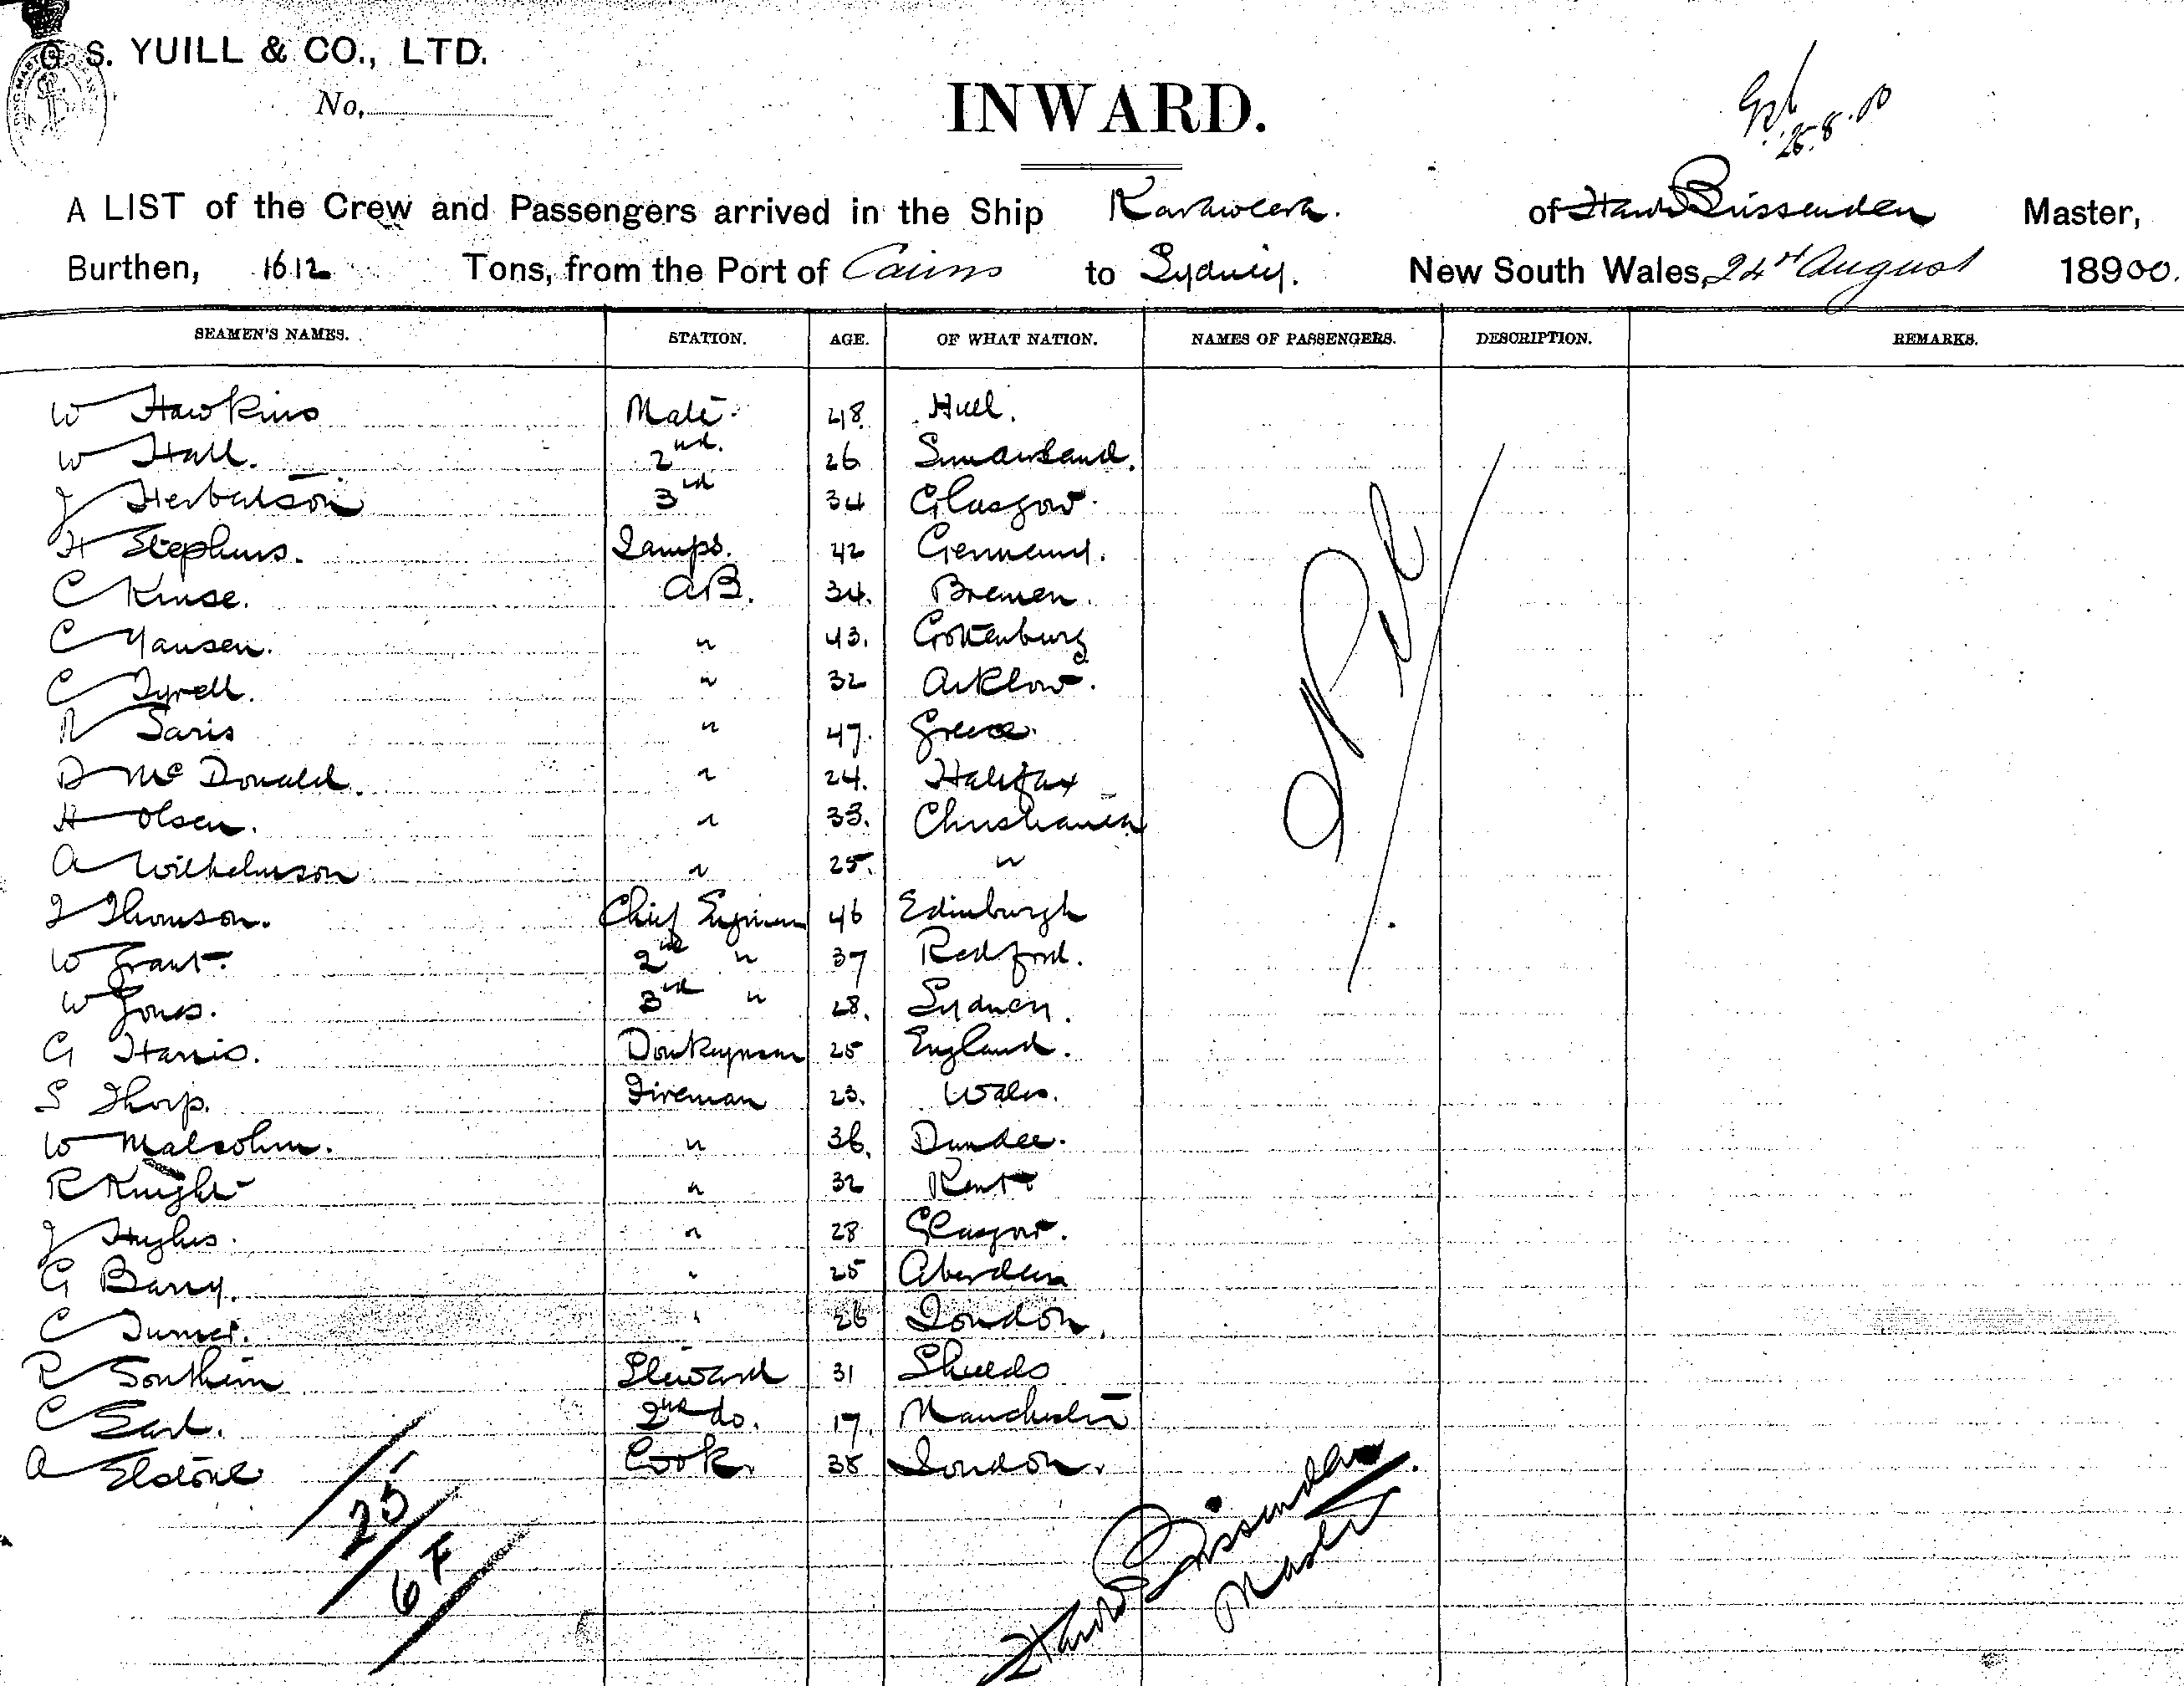 G. S. YUILL & CO., LTD.
No.
INWARD.
25.8.00
A LIST of the Crew and Passengers arrived in the Ship Karaweera. of Hawk Brissenden Master,
Burthen, 1612 Tons, from the Port of Cairns to Sydney. New South Wales, 24th August 18900.
SEAMEN'S NAMES. STATION. AGE. OF WHAT NATION. NAMES OF PASSENGERS. DESCRIPTION. REMARKS.
W Hawkins Mate 48. Hull.
W Hall. 2nd. 26 Sunderland.
J Herbertson 3rd 34 Glasgow.
H Stephens. Lamps. 42 Germany.
C Kruse. A.B. 34. Bremen.
C Yansen. " 43. Gottenburg
C Tyrell. " 32 Arklow.
N Saris " 47. Greece.
D McDonald. " 24. Halifax
H Olsen. " 33. Christiania
A Wilhelmson " 25. "
J Thomson. Chief Engineer 46 Edinburgh
W Grant. 2nd " 37 Redford.
W Jones. 3rd " 28. Sydney.
G Harris. Donkeyman 25 England.
S Thorp. Fireman 23. Wales.
W Malcolm. " 36. Dundee.
R Knight " 32 Kent
J Hughes. " 28 Glasgow.
G Barry. " 25 Aberdeen
C Turner. " 26 London.
R Southern Steward 31 Shields
C Earl. 2nd do. 17. Manchester
A Elstone Cook. 38 London.
25
6 F
Brissenden
Master